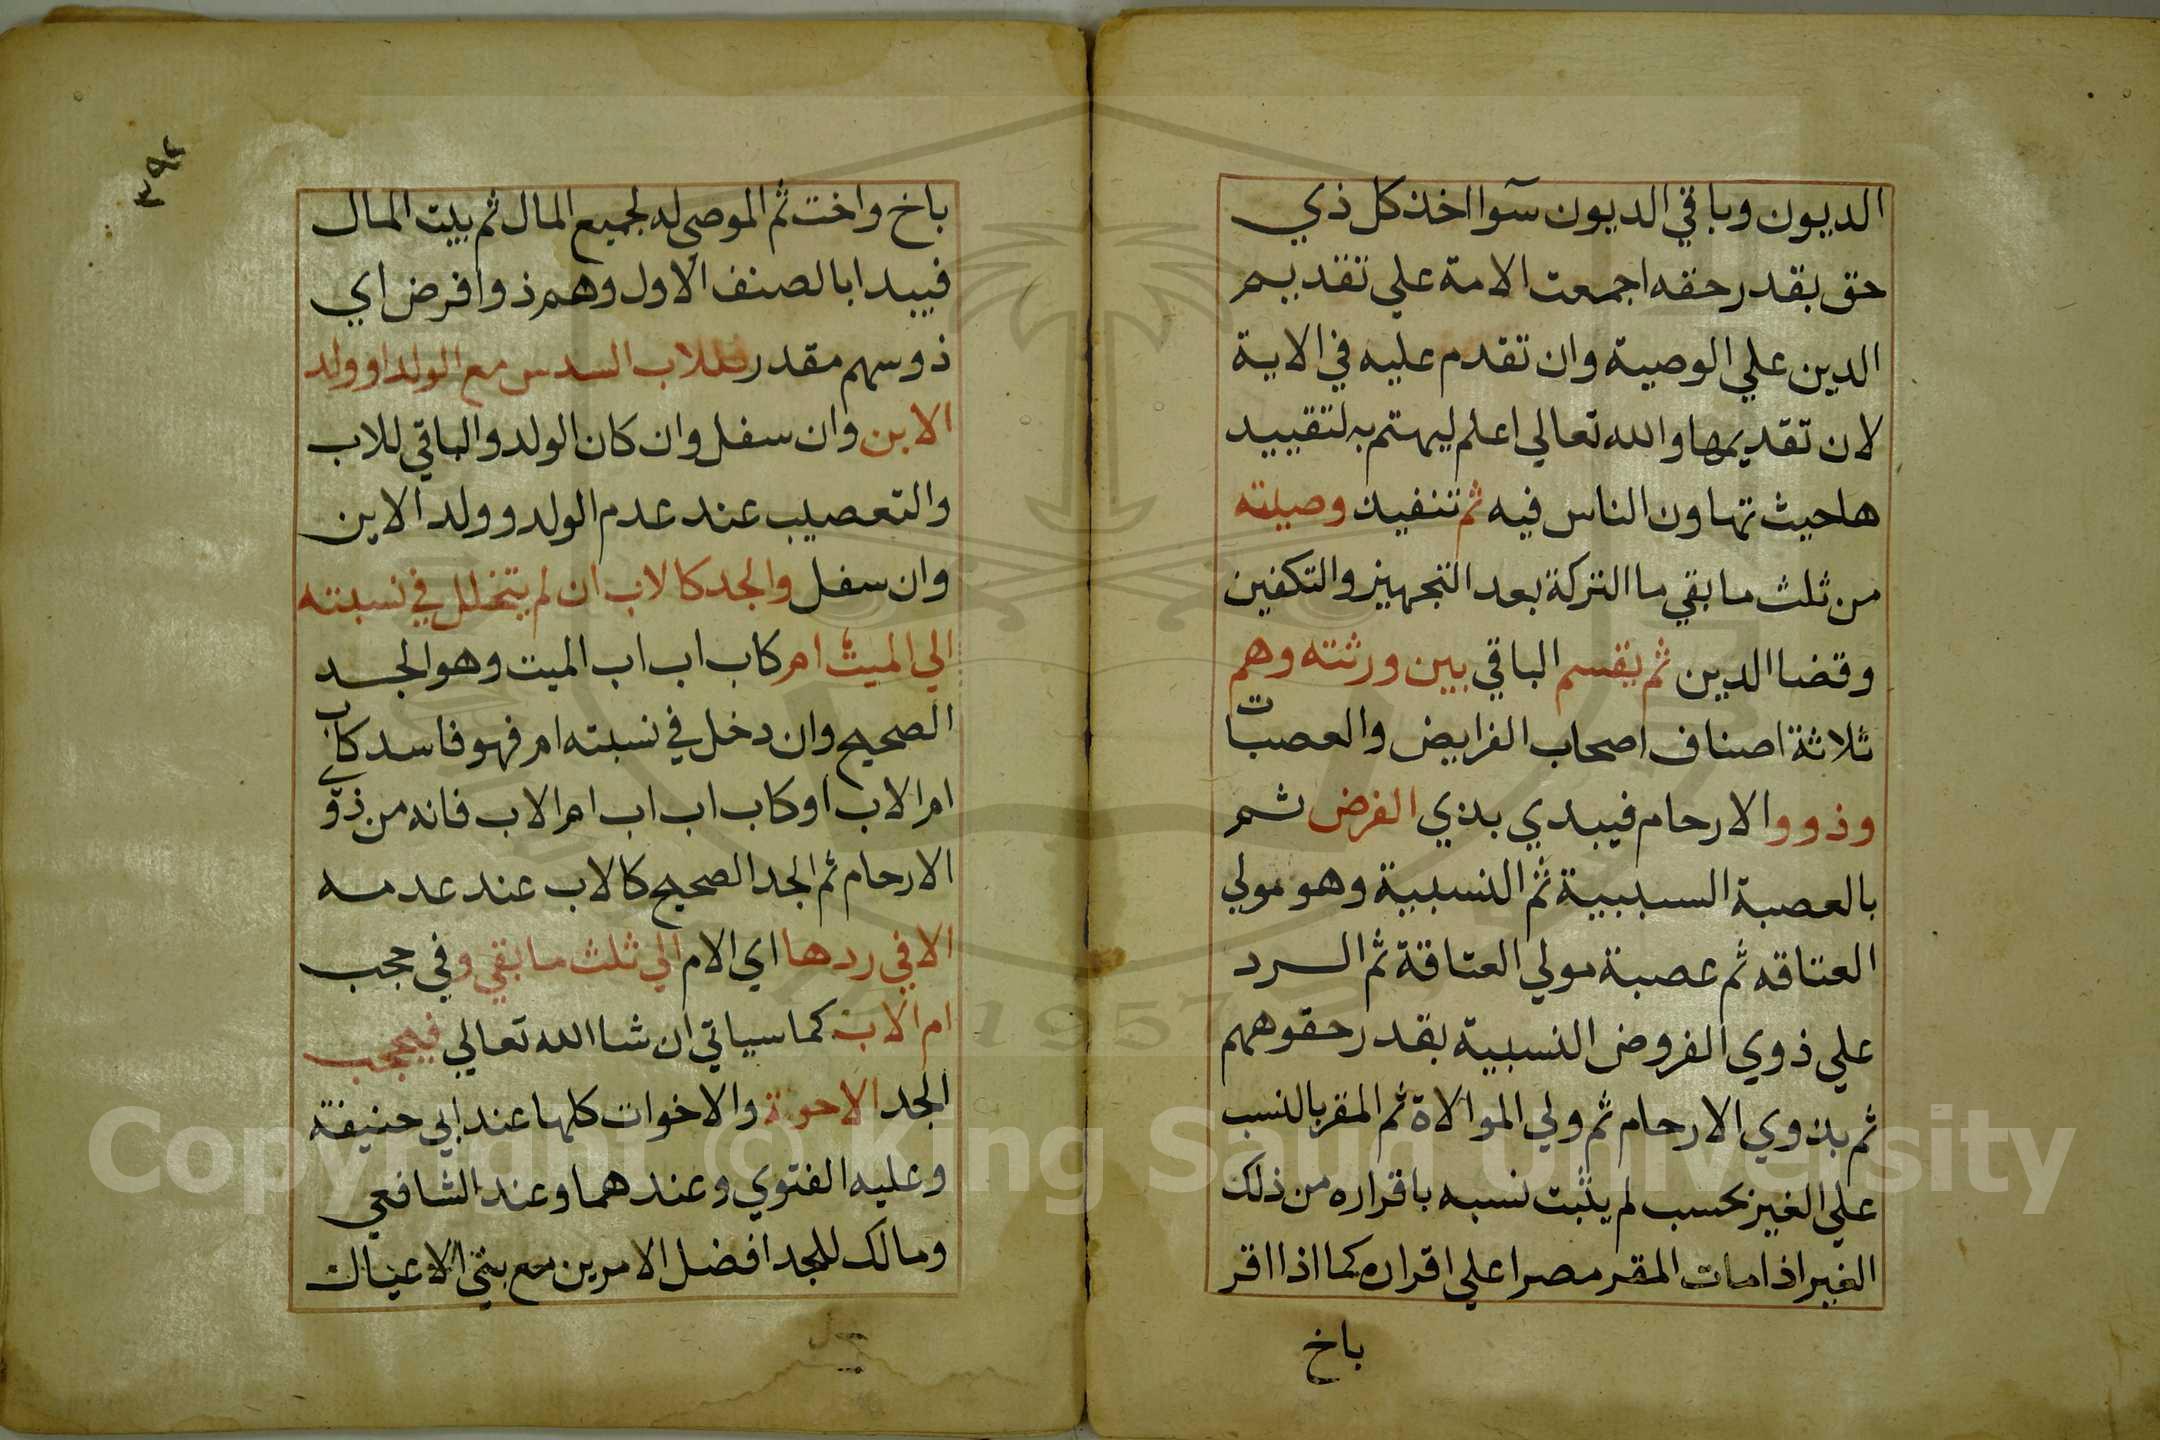 الديون وباقي الديون سوآا اخذ كل ذي
حق بقدر حقه اجمعت الامة علي تقديم
الدين علي الوصية وان تقدم عليه في الاية
لان تقديمها والله تعالي اعلم ليهتم به لتقييد
ها حيث تهاون الناس فيه ثم تنفيذ وصيته
من ثلث ما بقي ما التركة بعد التجهيز والتكفين
وقضا الدين ثم يقسم الباقي بين ورثته وهم
ثلاثة اصناف اصحاب الفرايض والعصبات
وذوو الارحام فيبدي بذي الفرض ثم
بالعصبة السببية ثم النسبية وهو مولي
العتاقه ثم عصبة مولي العتاقة ثم الرد
علي ذوي الفروض النسبية بقدر حقوهمم
ثم بذوي الارحام ثم ولي الموالاة ثم المقر بالنسب
علي الغير بحسب لم يثبت نسبه باقراره من ذلك
الغير اذا مات المقر مصرا علي اقراره كما اذا اقر
باخ
٣٩٢
باخ واخت ثم الموصي له لجميع المال ثم بيت المال
فيبدا بالصنف الاول وهم ذوا فرض اي
ذو سهم مقدر فللاب السدس مع الولد او ولد
الابن وان سفل وان كان الولد والباقي للاب
والتعصيب عند عدم الولد وولد الابن
وان سفل والجد كالاب ان لم يتخلل في نسبته
الي الميت ام كاب اب اب الميت وهو الجد
الصحيح وان دخل في نسبته ام فهو فاسد كاب
ام الاب او كاب اب اب ام الاب فانه من ذوي
الارحام ثم الجد الصحيح كالاب عند عدمه
الا في ردها اي الام الي ثلث ما بقي وفي حجب
ام الاب كما سياتي ان شا الله تعالي فيحجب
الجد الاخوة والاخوات كلها عند ابي حنيفة
وعليه الفتوي وعندهما وعند الشافعي
ومالك للجد افضل الامرين مع بني الاعيان
Copyright © King Saud University
1957